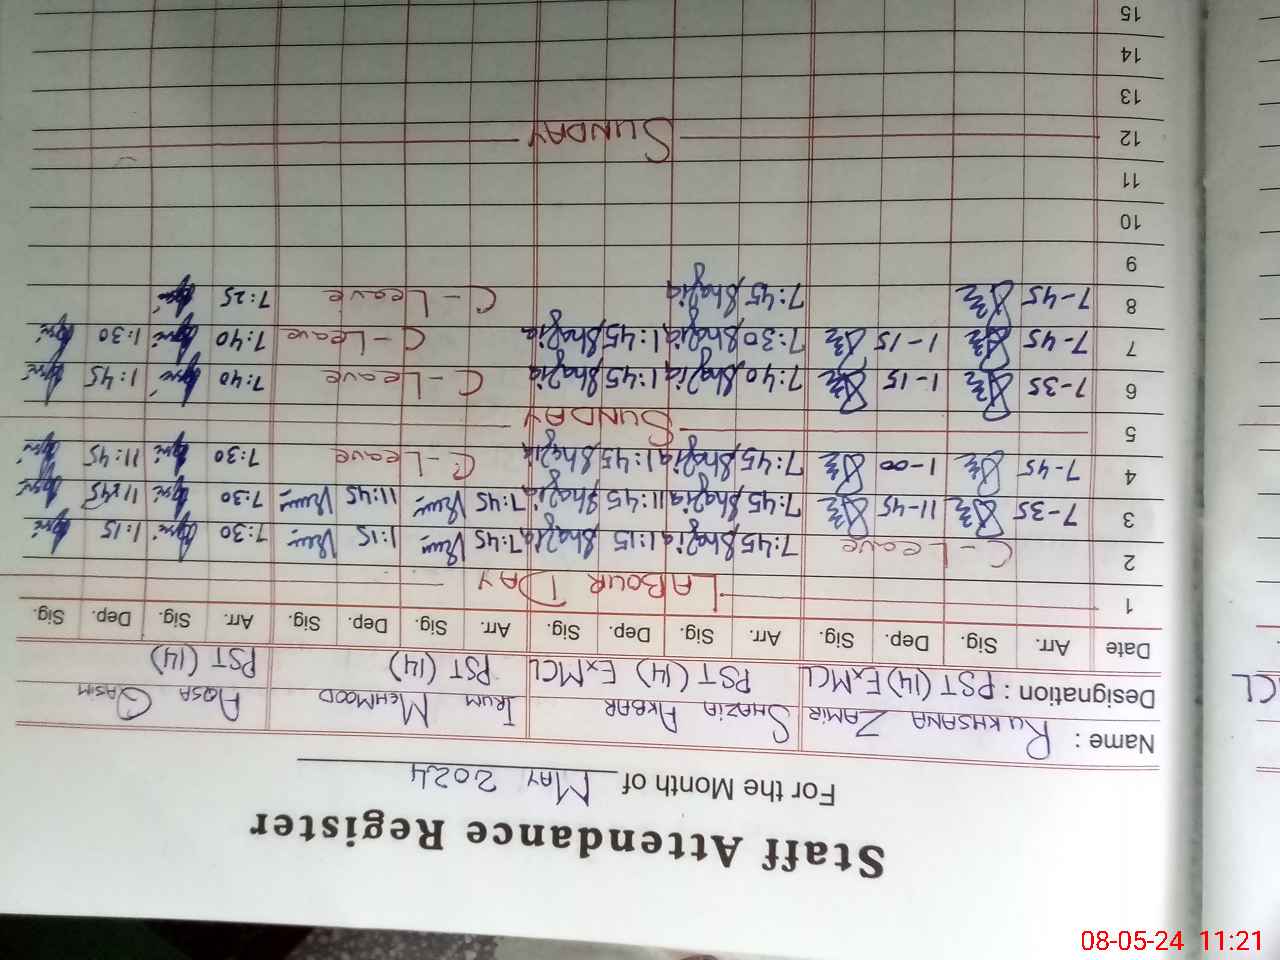 Staff Attendance Register
For the Month of MAY 2024
Name : RUKHSANA ZAMIR SHAZIA AKBAR IRUM MEHMOOD AQSA QASIM
Designation : PST (14) ExMCL PST (14) ExMCL PST (14) PST (14)
Date Arr. Sig. Dep. Sig. Arr. Sig. Dep. Sig. Arr. Sig. Dep. Sig. Arr. Sig. Dep. Sig.
1 LABOUR DAY
2 C-Leave 7:45 Shazia 1:15 Shazia 7:45 1:15 7:30 1:15
3 7-35 11-45 7:45 Shazia 11:45 Shazia 7:45 11:45 7:30 11:45
4 7-45 1-00 7:45 Shazia 1:45 Shazia C-Leave 7:30 11:45
5 SUNDAY
6 7-35 1-15 7:40 Shazia 1:45 Shazia C-Leave 7:40 1:45
7 7-45 1-15 7:30 Shazia 1:45 Shazia C-Leave 7:40 1:30
8 7-45 7:45 Shazia C-Leave 7:25
9
10
11
12 SUNDAY
13
14
15
CL
08-05-24 11:21